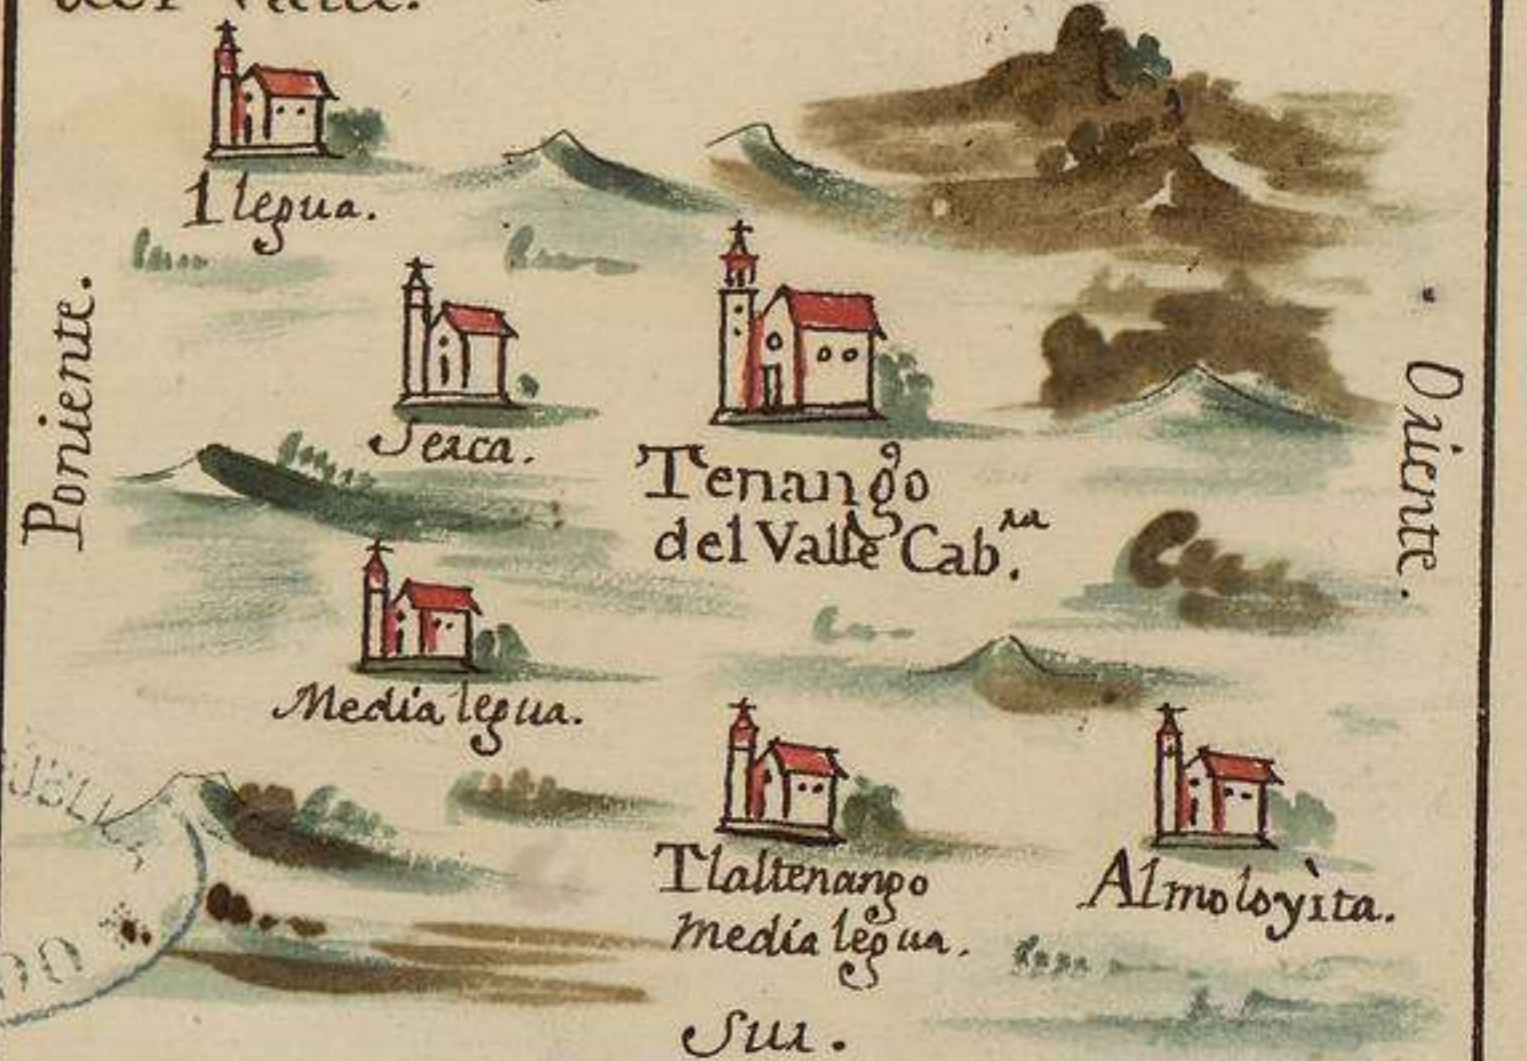 del Valle.
1 legua.
Poniente.
Oriente.
Serca.
Tenango
del Valle Cab.ra
Media legua.
Tlaltenango
media legua.
Almoloyita.
Sur.